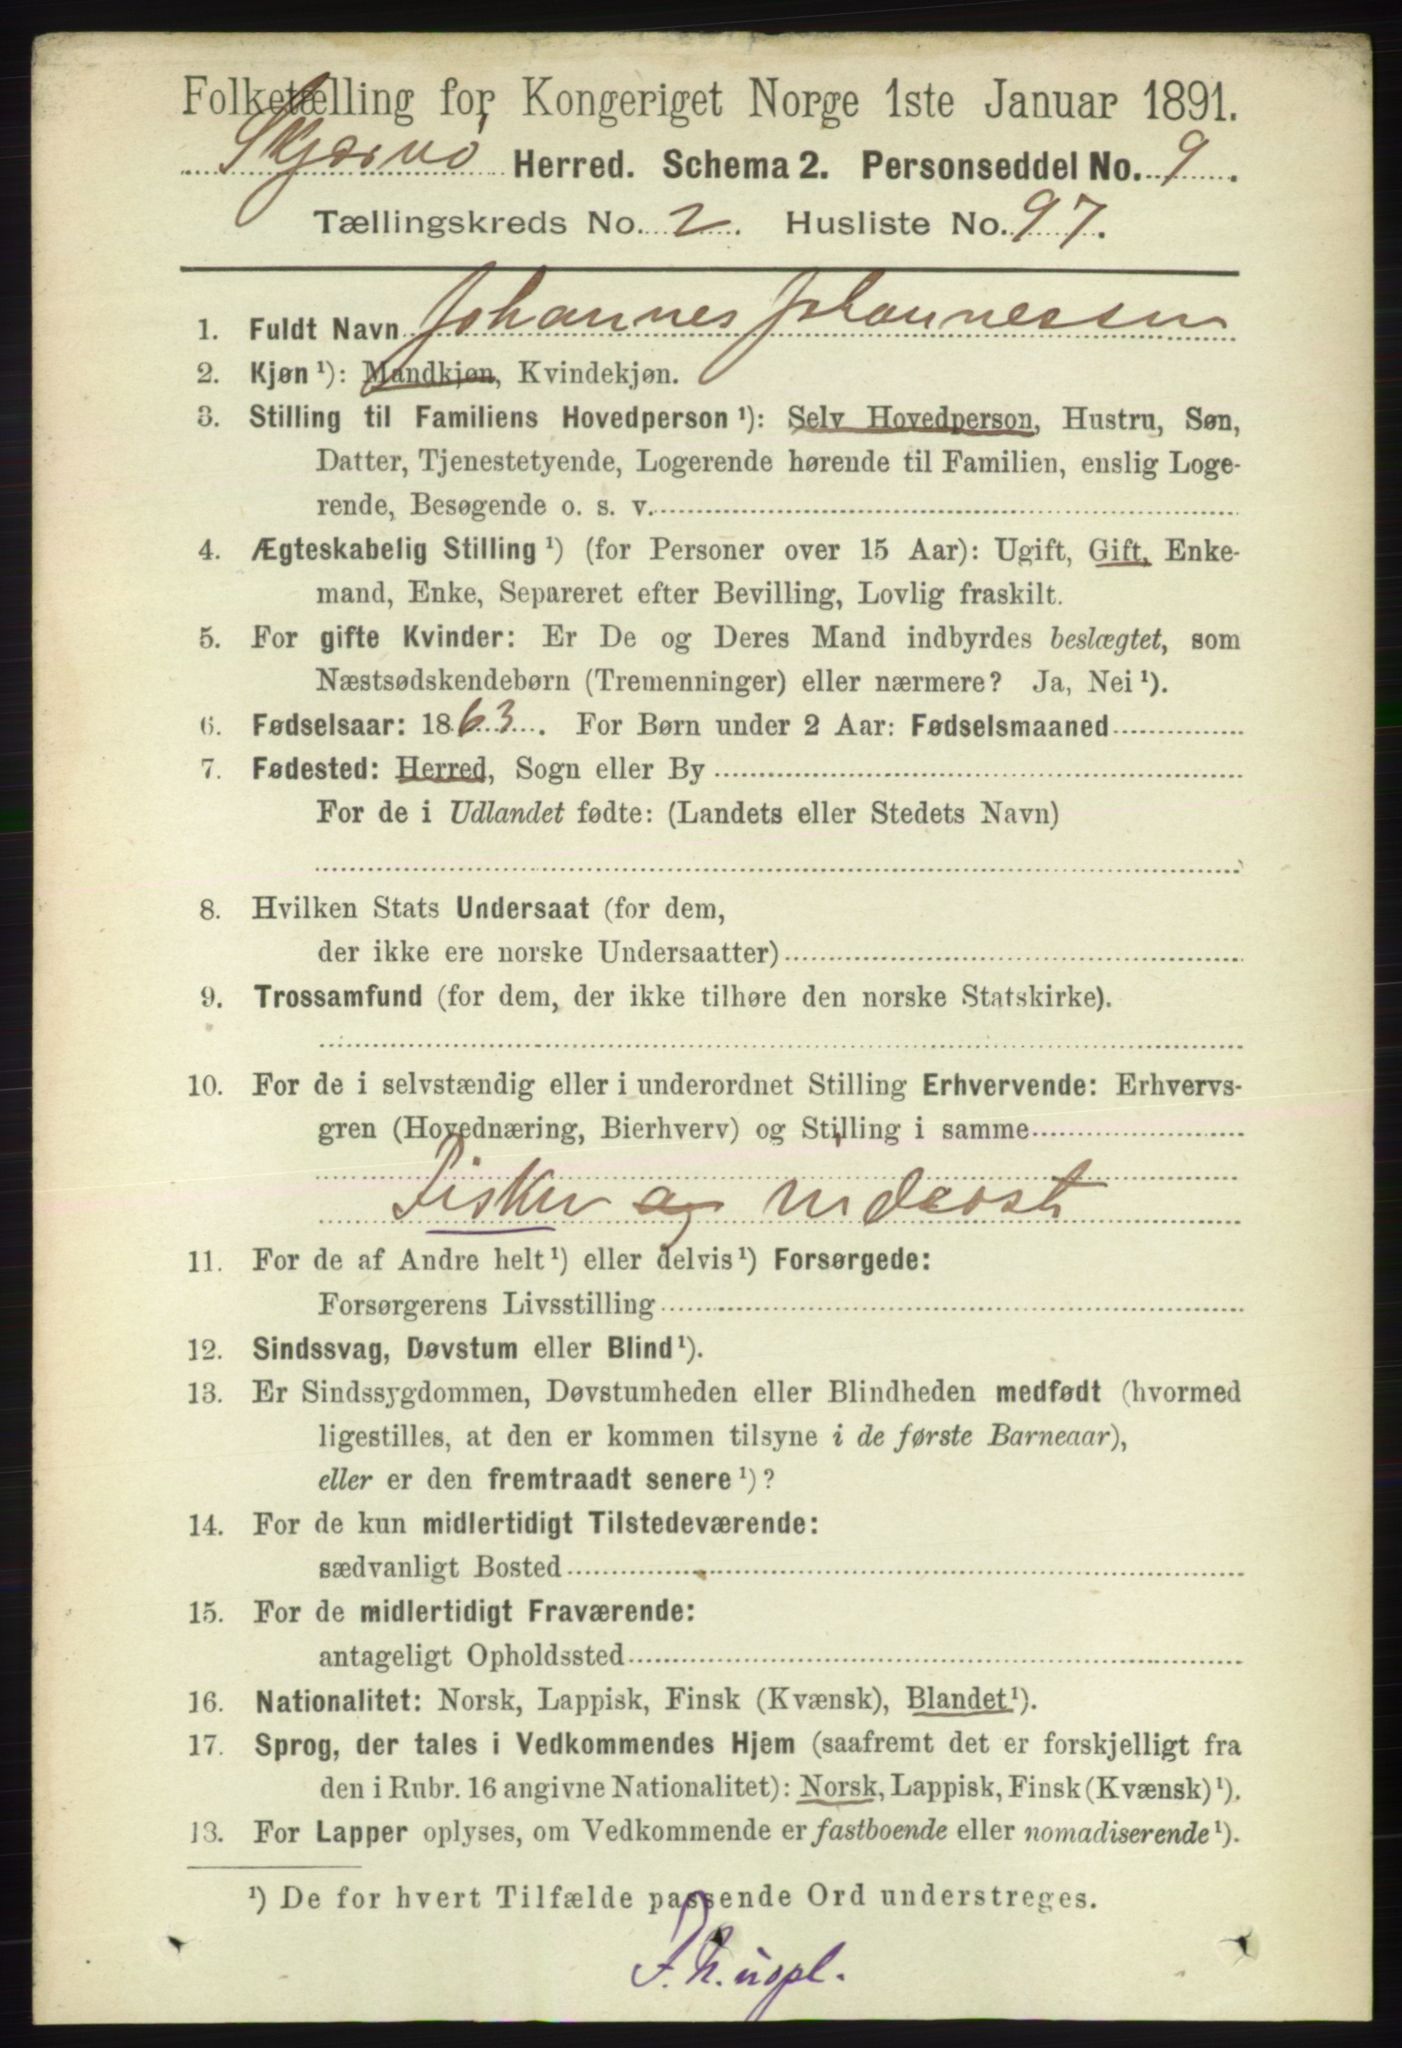 Folketælling for Kongeriget Norge 1ste Januar 1891.
Skjærvø Herred. Schema 2. Personseddel No. 9.
Tællingskreds No. 2. Husliste No. 97.
1. Fuldt Navn Johannes Johannessen
2. Kjøn ¹): Mandkjøn, Kvindekjøn.
3. Stilling til Familiens Hovedperson ¹): Selv Hovedperson, Hustru, Søn,
Datter, Tjenestetyende, Logerende hørende til Familien, enslig Loge-
rende, Besøgende o. s. v.
4. Ægteskabelig Stilling ¹) (for Personer over 15 Aar): Ugift, Gift, Enke-
mand, Enke, Separeret efter Bevilling, Lovlig fraskilt.
5. For gifte Kvinder: Er De og Deres Mand indbyrdes beslægtet, som
Næstsødskendebørn (Tremenninger) eller nærmere? Ja, Nei ¹).
6. Fødselsaar: 1863. For Børn under 2 Aar: Fødselsmaaned
7. Fødested: Herred, Sogn eller By
For de i Udlandet fødte: (Landets eller Stedets Navn)
8. Hvilken Stats Undersaat (for dem,
der ikke ere norske Undersaatter)
9. Trossamfund (for dem, der ikke tilhøre den norske Statskirke).
10. For de i selvstændig eller i underordnet Stilling Erhvervende: Erhvervs-
gren (Hovednæring, Bierhverv) og Stilling i samme
Fisker og inderst
11. For de af Andre helt ¹) eller delvis ¹) Forsørgede:
Forsørgerens Livsstilling
12. Sindssvag, Døvstum eller Blind ¹).
13. Er Sindssygdommen, Døvstumheden eller Blindheden medfødt (hvormed
ligestilles, at den er kommen tilsyne i de første Barneaar),
eller er den fremtraadt senere ¹)?
14. For de kun midlertidigt Tilstedeværende:
sædvanligt Bosted
15. For de midlertidigt Fraværende:
antageligt Opholdssted
16. Nationalitet: Norsk, Lappisk, Finsk (Kvænsk), Blandet ¹).
17. Sprog, der tales i Vedkommendes Hjem (saafremt det er forskjelligt fra
den i Rubr. 16 angivne Nationalitet): Norsk, Lappisk, Finsk (Kvænsk) ¹).
13. For Lapper oplyses, om Vedkommende er fastboende eller nomadiserende ¹).
¹) De for hvert Tilfælde passende Ord understreges.